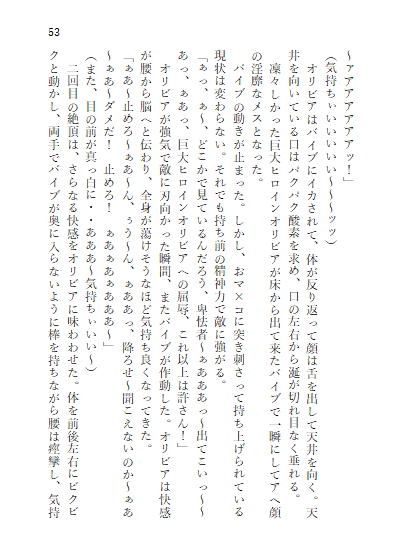 53
～ァアアアアアアッ！」
（気持ちぃいいいいい～～～ッッ）
　オリビアはバイブにイカされて、体が反り返って顔は舌を出して天井を向く。天
井を向いている口はパクパク酸素を求め、口の左右から涎が切れ目なく垂れる。
　凜々しかった巨大ヒロインオリビアが床から出て来たバイブで一瞬にしてアヘ顔
の淫靡なメスとなった。
　バイブの動きが止まった。しかし、おマ×コに突き刺さって持ち上げられている
現状は変わらない。それでも持ち前の精神力で敵に強がる。
「ぁっ、ぁ～、どこかで見ているんだろう、卑怯者～ぁああぁっ～出てこいっ～～
あっ、ぁあっ、巨大ヒロインオリビアへの屈辱、これ以上は許さん！」
　オリビアが強気で敵に刃向かった瞬間、またバイブが作動した。オリビアは快感
が腰から脳へと伝わり、全身が蕩けそうなほど気持ち良くなってきた。
「ぁぁ～止めろ～ぁあ～ん、ぅう～ん、ぁああっ、降ろせ～聞こえないのか～ぁあ
～ぁあ～ダメだ！　止めろ！　ぁあぁあぁあああ～」
（また、目の前が真っ白に・・あああ～気持ちぃいい～）
　二回目の絶頂は、さらなる快感をオリビアに味わわせた。体を前後左右にビクビ
クと動かし、両手でバイブが奥に入らないように棒を持ちながら腰は痙攣し、気持